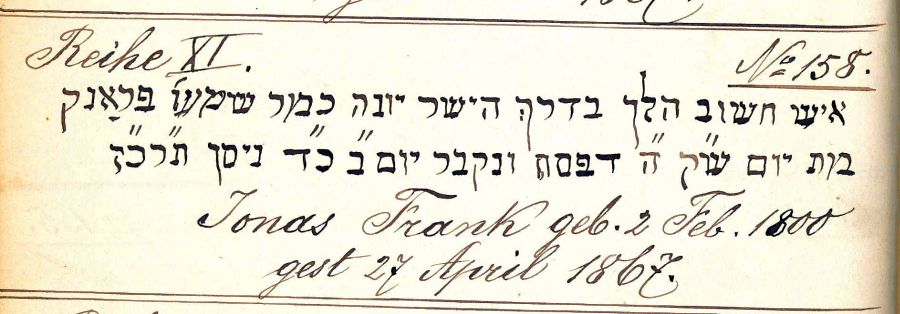 Reihe XI. № 158.
איש חשוב הלך בדרך הישר יונה כמר שמעון פראנק
מת יום ש״ק ה״ דפסח ונקבר יום ב״ כ״ד ניסן תרכ״ז
Jonas Frank geb. 2 Feb. 1800
gest 27 April 1867.